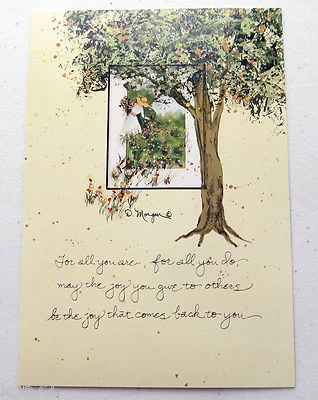 D. Morgan ©
For all you are, for all you do,
may the joy you give to others
be the joy that comes back to you